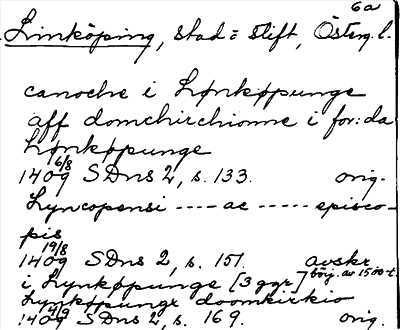 6a
Linköping, stad = stift, Österg. l.
canoche i Lønkøpunge
aff domchirchionne i for:da
Lønkøpunge
1409 6/8 SDns 2, s. 133. orig.
Lyncopensi ---- ac ---- episco-
pis
1409 19/8 SDns 2, s. 151. avskr. börj. av 1500-t.
i Lynkøpunge [3 ggr]
Lynkøpungx doomkirkio
1409 4/9 SDns 2, s. 169. orig.